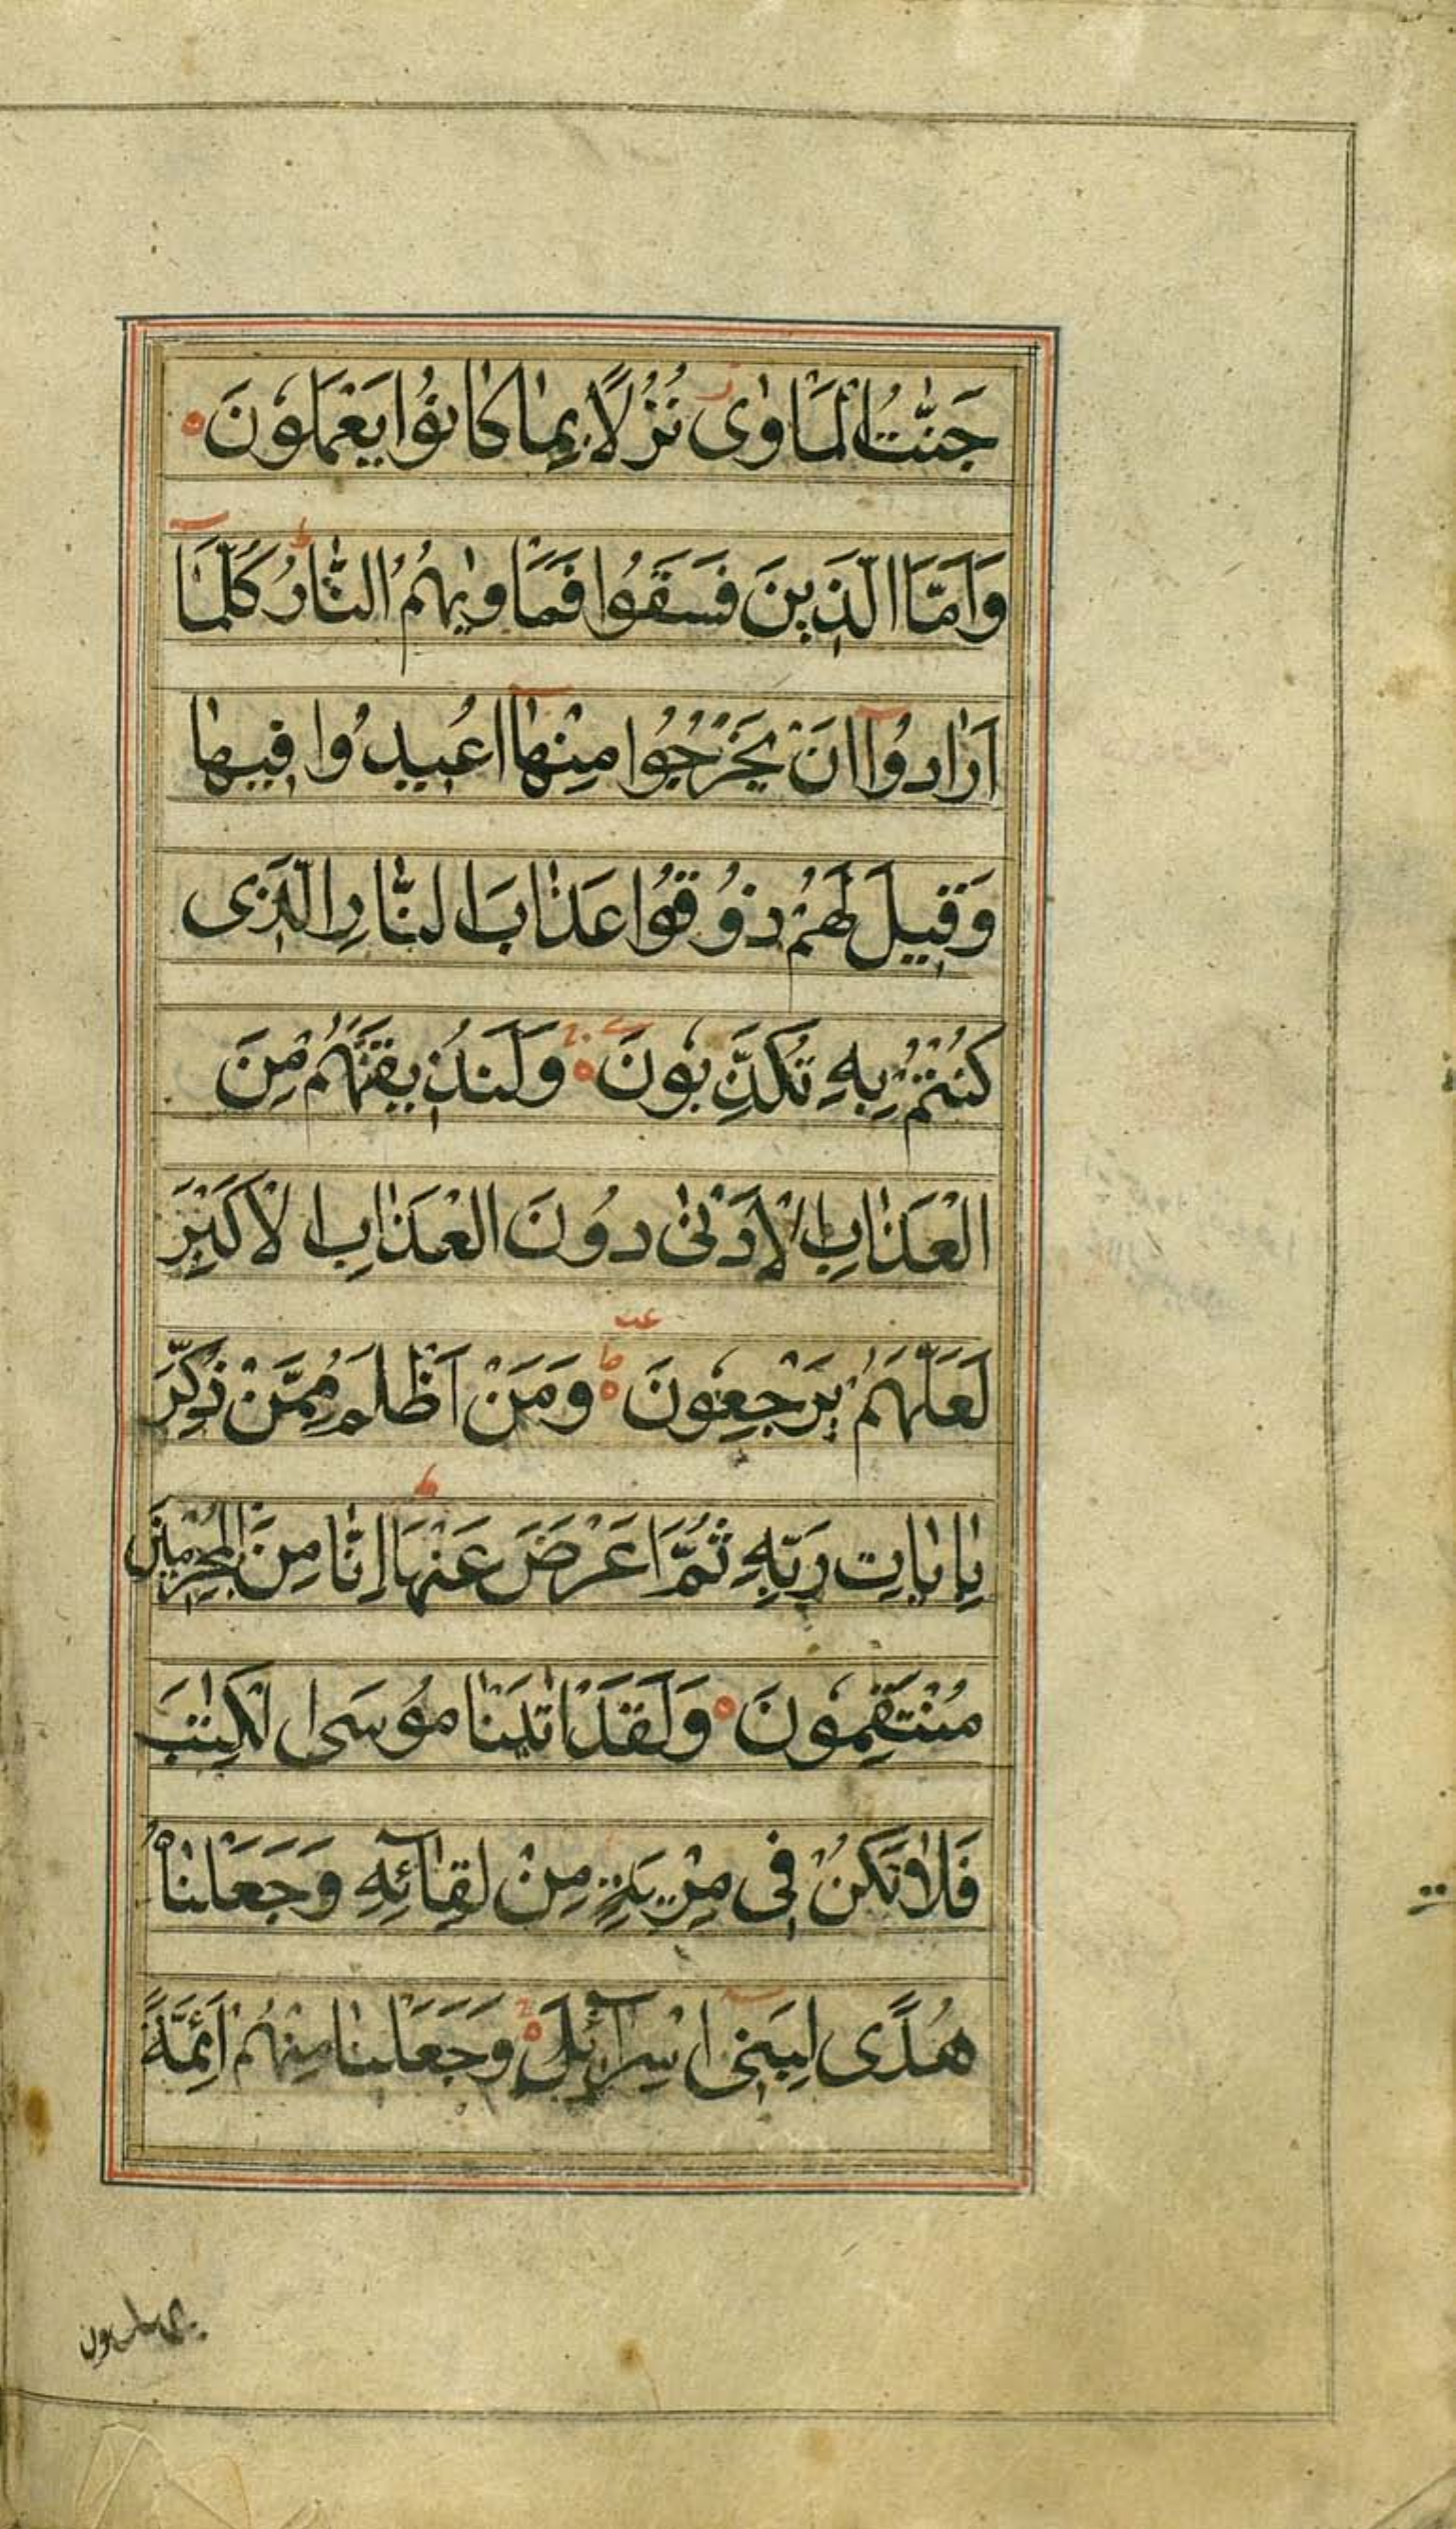 جَنّٰتُ الْمَاْوٰی نُزُلًا بِمٰا كٰانُوا یَعْمَلُونَ
وَاَمَّا الَّذِینَ فَسَقُوا فَمَاْوٰیهُمُ النّٰارُ كُلَّمٰا
اَرٰادُوا اَنْ یَخْرُجُوا مِنْهٰا اُعِیدُوا فِیهٰا
وَقِیلَ لَهُمْ ذُوقُوا عَذٰابَ النّٰارِ الَّذِی
كُنْتُمْ بِهِ تُكَذِّبُونَ وَلَنُذِیقَنَّهُمْ مِنَ
الْعَذٰابِ الْاَدْنٰی دُونَ الْعَذٰابِ الْاَكْبَرِ
لَعَلَّهُمْ یَرْجِعُونَ وَمَنْ اَظْلَمُ مِمَّنْ ذُكِّرَ
بِاٰیٰاتِ رَبِّهِ ثُمَّ اَعْرَضَ عَنْهَا اِنّٰا مِنَ الْمُجْرِمِینَ
مُنْتَقِمُونَ وَلَقَدْ اٰتَیْنٰا مُوسَی الْكِتٰبَ
فَلٰا تَكُنْ فِی مِرْیَةٍ مِنْ لِقٰائِهِ وَجَعَلْنٰاهُ
هُدًی لِبَنِی اِسْرٰائِلَ وَجَعَلْنٰا مِنْهُمْ اَئِمَّةً